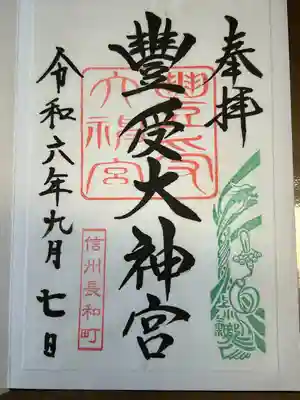 奉拝
豐受大神宮
令和六年九月七日
信州長和町